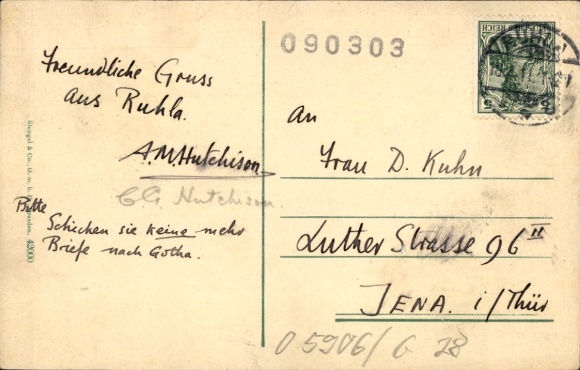 090303
Freundliche Gruss
aus Ruhla.
A.M.Hutchison
C.G. Hutchison.
Bitte
Schicken sie keine mehr
Briefe nach Gotha.
Stengel & Co., G. m. b. H., Dresden. 42000
DEUTSCHES REICH
5 5
RUHLA
An
Frau D. Kuhn
Luther Strasse 96 II
JENA. i/Thür
05906/G 28